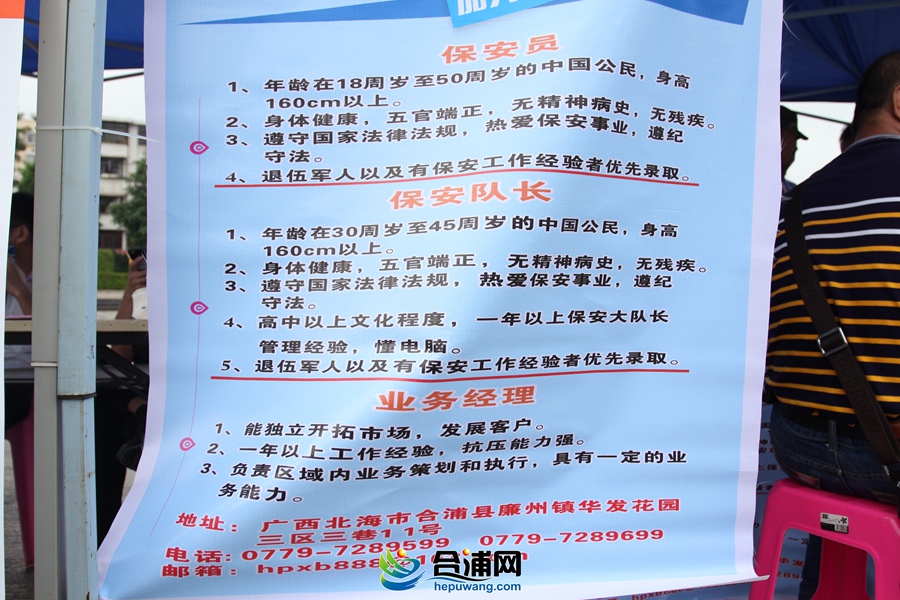 保安员
1、年龄在18周岁至50周岁的中国公民，身高
160cm以上。
2、身体健康，五官端正，无精神病史，无残疾。
3、遵守国家法律法规，热爱保安事业，遵纪
守法。
4、退伍军人以及有保安工作经验者优先录取。
保安队长
1、年龄在30周岁至45周岁的中国公民，身高
160cm以上。
2、身体健康，五官端正，无精神病史，无残疾。
3、遵守国家法律法规，热爱保安事业，遵纪
守法。
4、高中以上文化程度，一年以上保安大队长
管理经验，懂电脑。
5、退伍军人以及有保安工作经验者优先录取。
业务经理
1、能独立开拓市场，发展客户。
2、一年以上工作经验，抗压能力强。
3、负责区域内业务策划和执行，具有一定的业
务能力。
地址：广西北海市合浦县廉州镇华发花园
三区三巷11号
电话：0779-7289599 0779-7289699
邮箱：hpxb888
合浦网
hepuwang.com